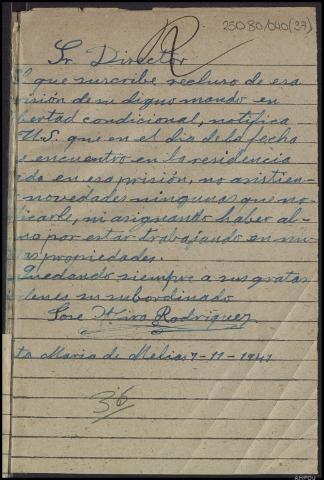 25080/040(37)
R
Sr Director
El que suscribe recluso de esa
risión de su digno mando en
bertad condicional, notifica
U.S. que en el dia de la fecha
e encuentro en la residencia
ida en esa prisión, no existien-
novedades ningunas que no-
icarle, ni asignando haber al-
no por estar trabajando en mi-
as propiedades.
Quedando siempre a sus gratas
denes su subordinado
Jose Rodriguez
ta Maria de Melias 7-11-1941
36
AHPOU